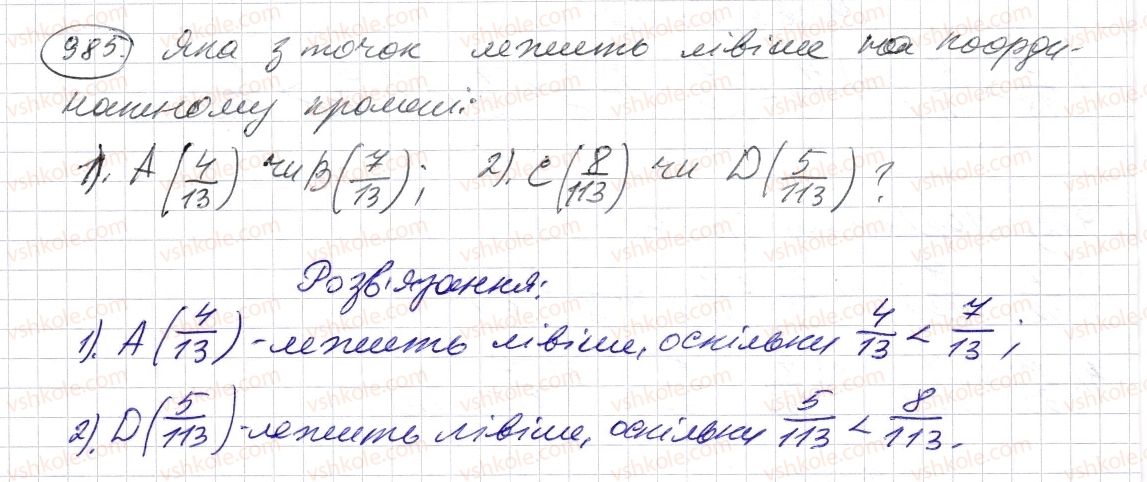 985. Яка з точок лежить лівіше на коорди-
натному промені:
1). A(4/13) чи B(7/13); 2). C(8/113) чи D(5/113)?
Розв'язання:
1). A(4/13) - лежить лівіше, оскільки 4/13 < 7/13;
2). D(5/113) - лежить лівіше, оскільки 5/113 < 8/113.